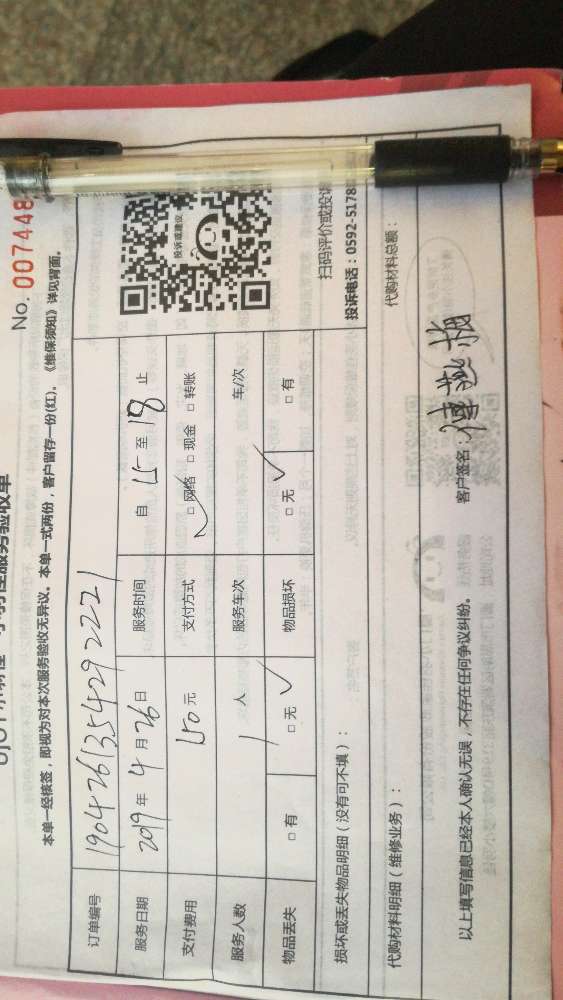 服务验收单
No. 007448
本单一经核签，即视为对本次服务验收无异议。本单一式两份，客户留存一份(红)。《维保须知》详见背面。
订单编号 1904261354292221
服务日期 2019年4月26日 服务时间 自 15 至 18 止
支付费用 150元 支付方式 □网络 □现金 □转账
服务人数 1 人 服务车次 车/次
物品丢失 □有 □无 物品损坏 □无 □有
投诉或建议
损坏或丢失物品明细（没有可不填）：
扫码评价或投诉
投诉电话：0592-5178
代购材料明细（维修业务）：
代购材料总额：
以上填写信息已经本人确认无误，不存在任何争议纠纷。
客户签名：